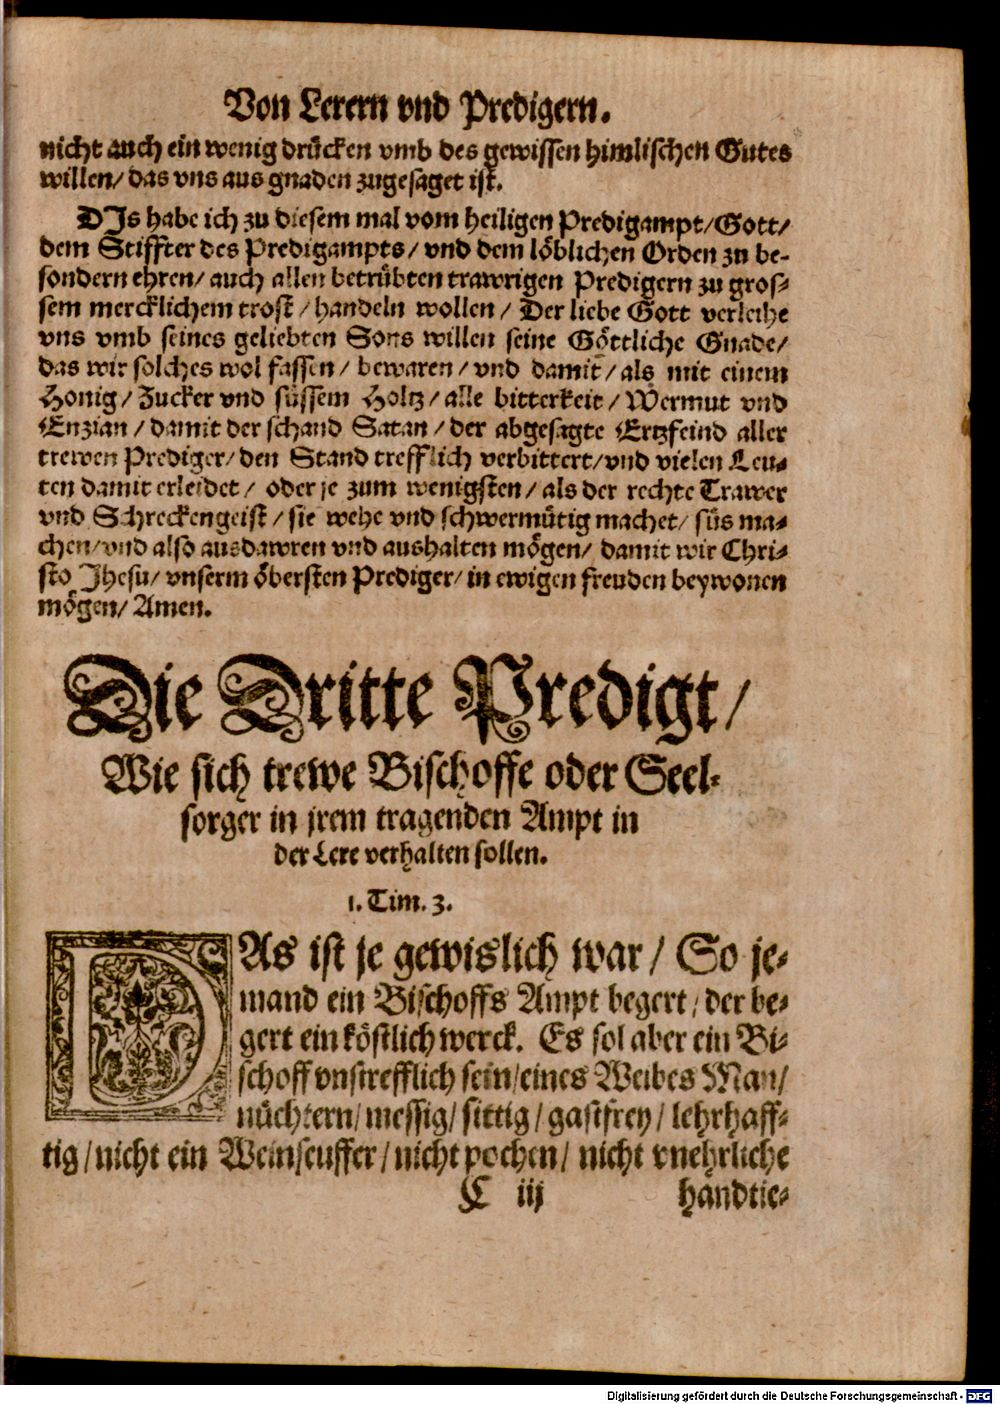 Von Lerern vnd Predigern.
nicht auch ein wenig drücken vmb des gewissen himlischen Gutes
willen/ das vns aus gnaden zugesaget ist.
DIs habe ich zu diesem mal vom heiligen Predigampt/Gott/
dem Stiffter des Predigampts/ vnd dem löblichen Orden zu be-
sondern ehren/ auch allen betrübten trawrigen Predigern zu gros-
sem mercklichem trost/ handeln wollen/ Der liebe Gott verleihe
vns vmb seines geliebten Sons willen seine Göttliche Gnade/
das wir solches wol fassen/ bewaren/ vnd damit/ als mit einem
Honig/ Zucker vnd süssem Holtz/ alle bitterkeit/ Wermut vnd
Enzian/ damit der schand Satan/ der abgesagte Ertzfeind aller
trewen Prediger/ den Stand trefflich verbittert/vnd vielen Leu-
ten damit erleidet/ oder je zum wenigsten/ als der rechte Trawer
vnd Schreckengeist/ sie wehe vnd schwermütig machet/ süs ma-
chen/vnd also ausdawren vnd aushalten mögen/ damit wir Chri-
sto Jhesu/ vnserm öbersten Prediger/ in ewigen freuden beywonen
mögen/ Amen.
Die Dritte Predigt/
Wie sich trewe Bischoffe oder Seel-
sorger in jrem tragenden Ampt in
der Lere verhalten sollen.
1. Tim. 3.
DAs ist je gewislich war/ So je-
mand ein Bischoffs Ampt begert/ der be-
gert ein köstlich werck. Es sol aber ein Bi-
schoff vnstrefflich sein/eines Weibes Man/
nüchtern/ messig/ sittig/ gastfrey/ lehrhaff-
tig/nicht ein Weinseuffer/nicht pochen/ nicht vnehrliche
C iij handtie-
Digitalisierung gefördert durch die Deutsche Forschungsgemeinschaft - DFG